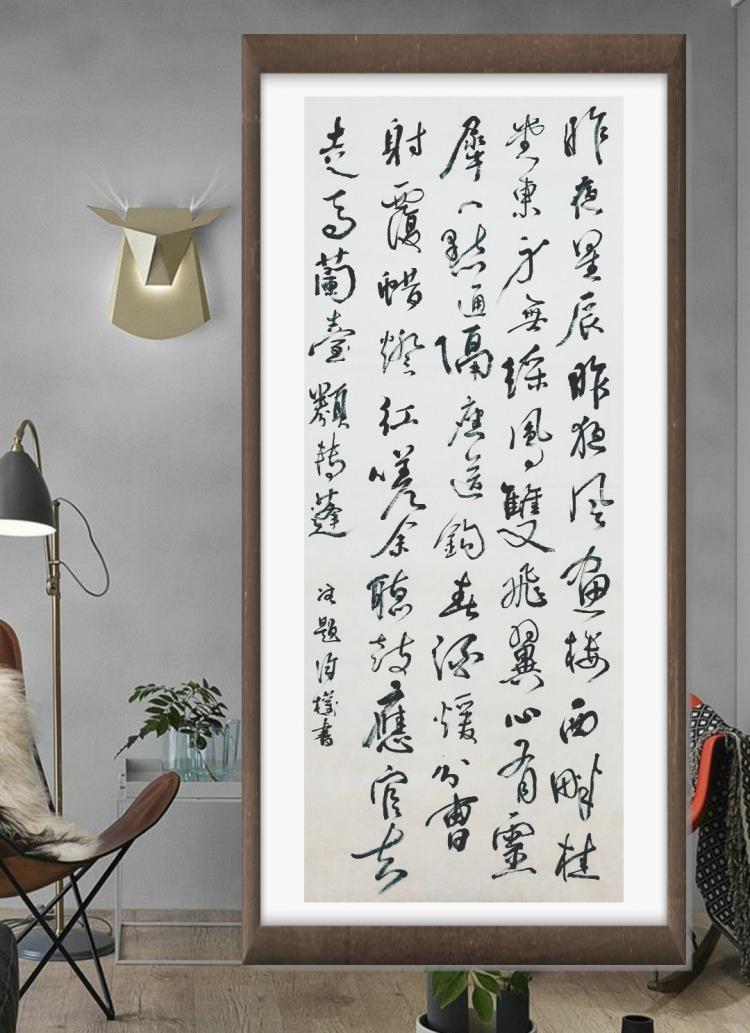 昨夜星辰昨夜风畫楼西畔桂
堂東身無綵鳳雙飛翼心有靈
犀一點通隔座送鈎春酒煖分曹
射覆蜡燈紅嗟余聽鼓應官去
走馬蘭臺類轉蓬
无題 書